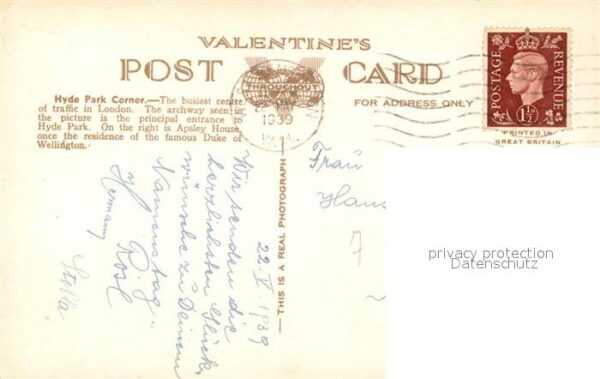 VALENTINE'S
POST CARD
THROUGHOUT
1939
FOR ADDRESS ONLY
POSTAGE
REVENUE
1½
PRINTED IN
GREAT BRITAIN
Hyde Park Corner.—The busiest centre
of traffic in London. The archway seen in
the picture is the principal entrance to
Hyde Park. On the right is Apsley House,
once the residence of the famous Duke of
Wellington.
THIS IS A REAL PHOTOGRAPH
22. V. 1939
Wir senden die
herzlichsten Glück-
wünsche zu Deinem
Namenstag.
Rosl
Hermann
Stella
Frau
Hans
7
privacy protection
Datenschutz